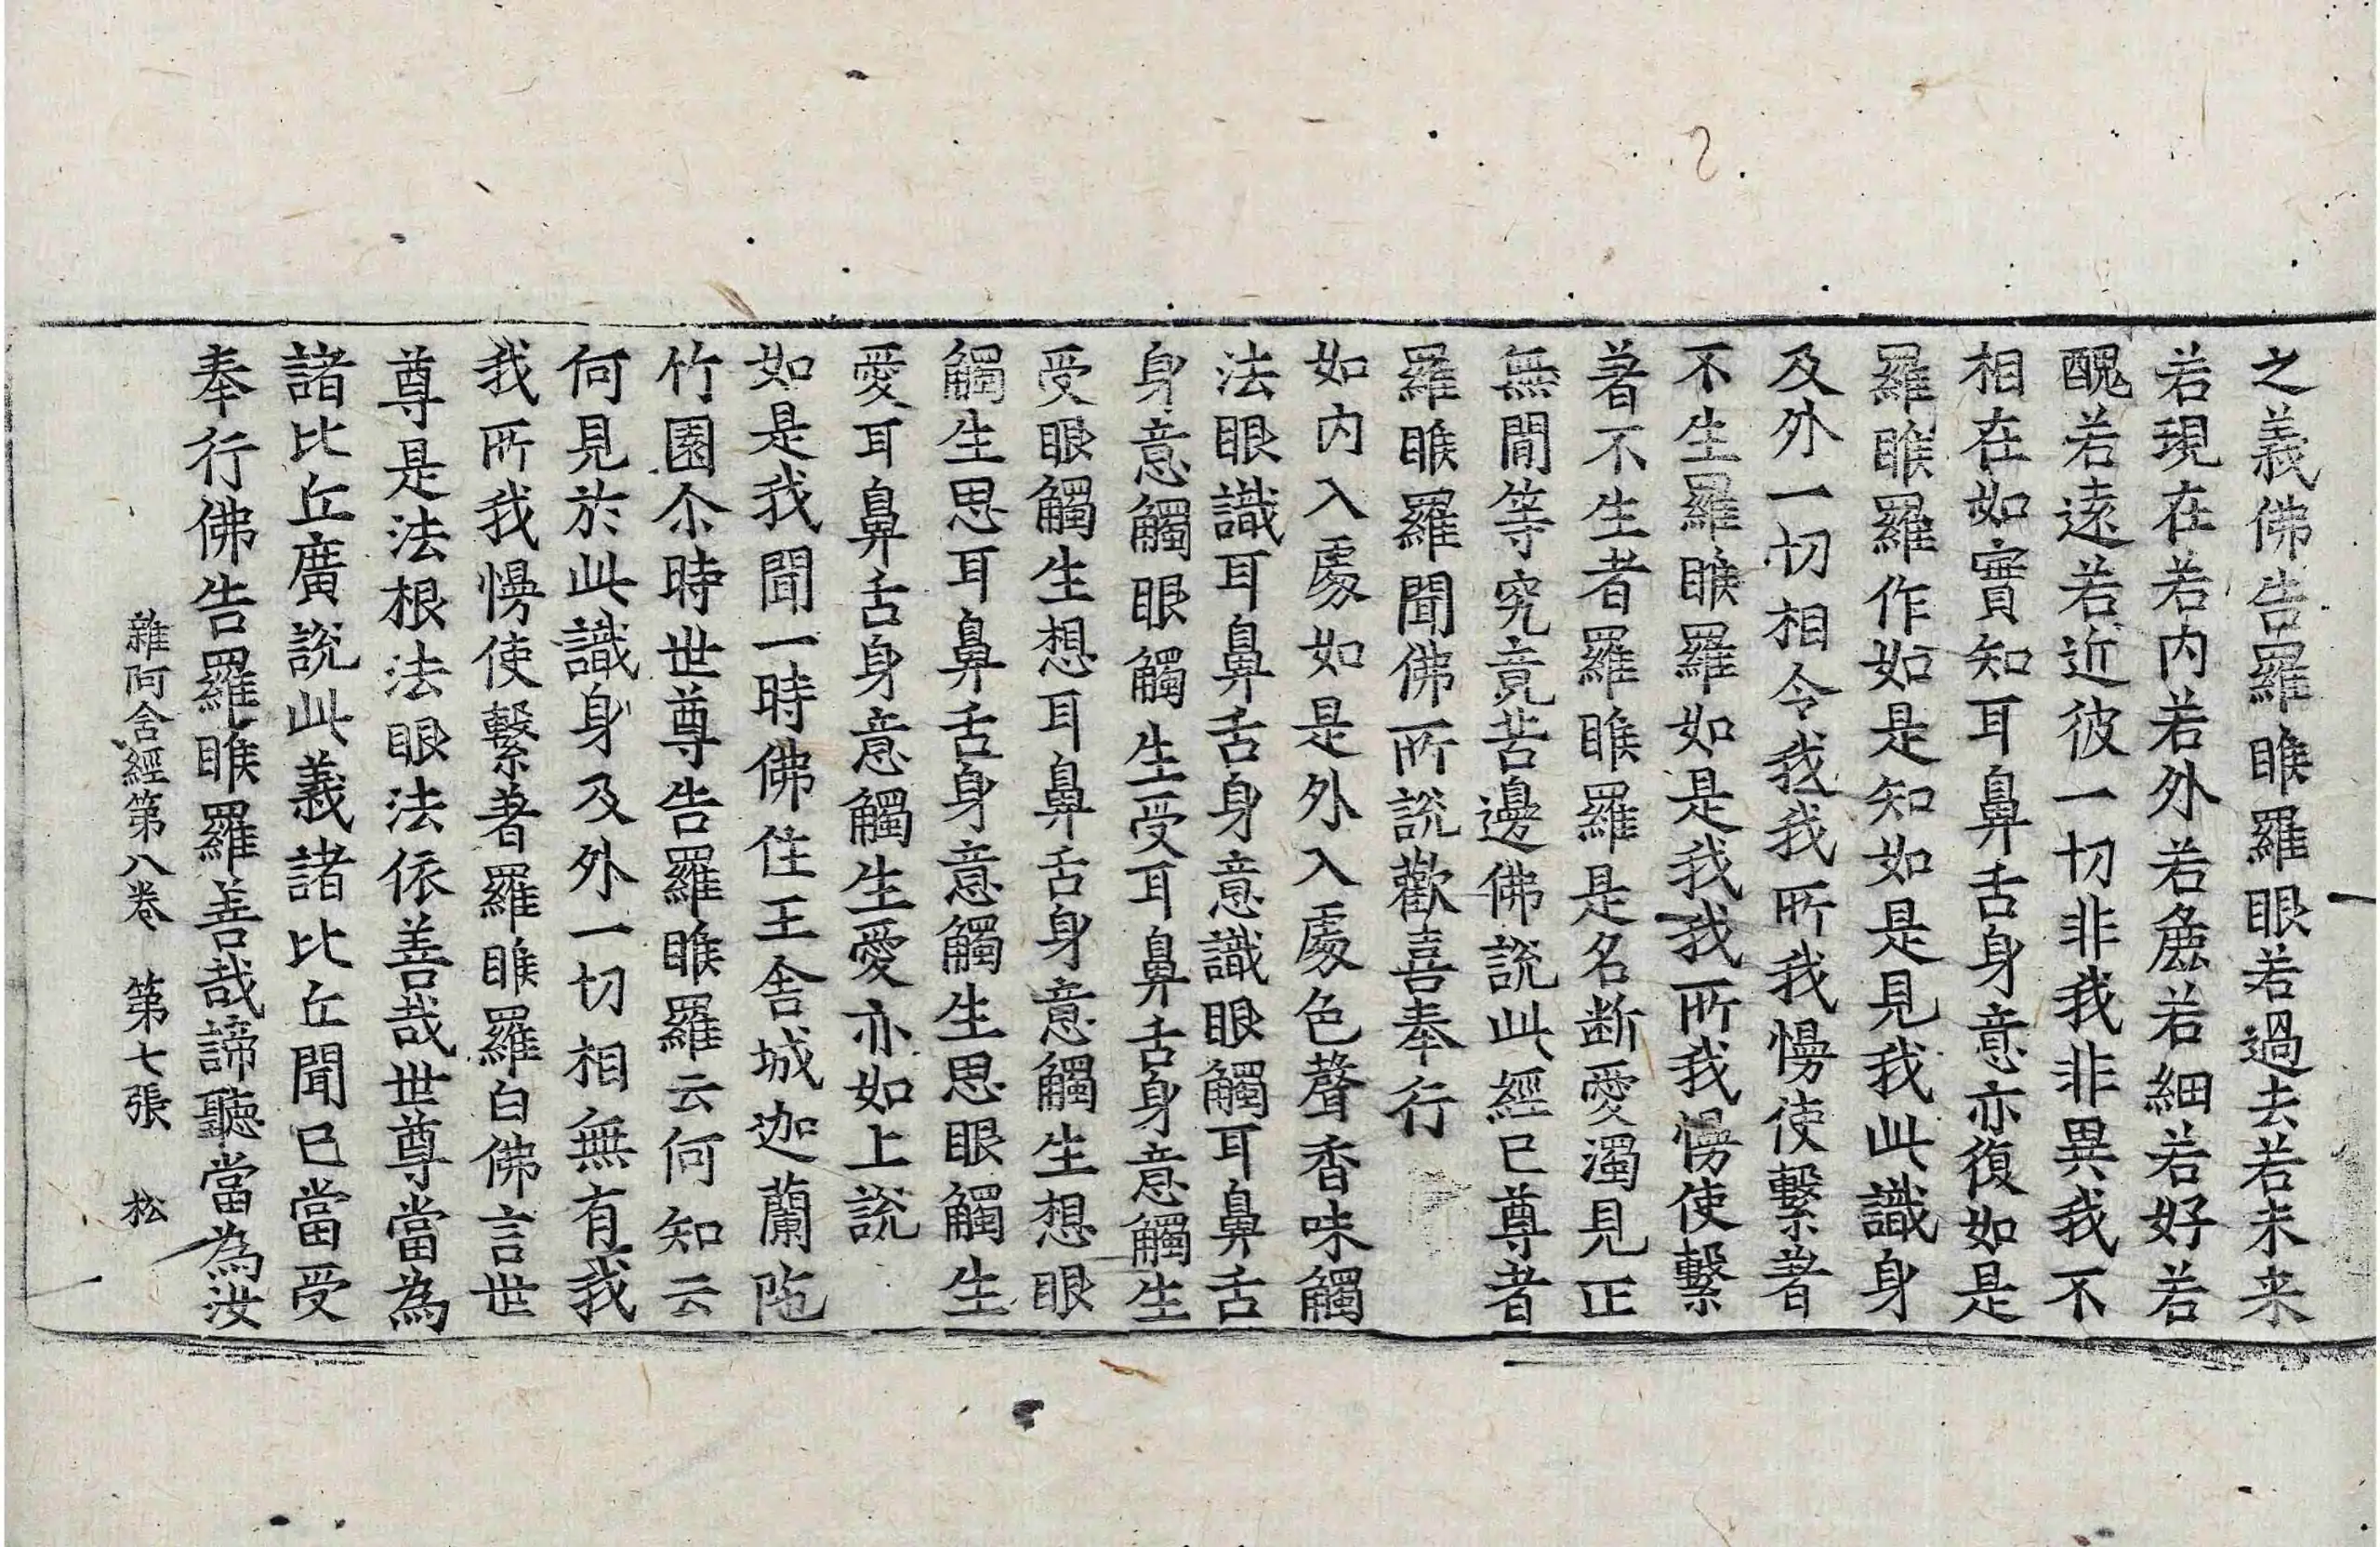 之義佛告羅睺羅眼若過去若未来
若現在若内若外若麁若細若好若
醜若遠若近彼一切非我非異我不
相在如實知耳鼻舌身意亦復如是
羅睺羅作如是知如是見我此識身
及外一切相令我我所我慢使繫著
不生羅睺羅如是我我所我慢使繫
著不生者羅睺羅是名断愛濁見正
無閒等究竟苦邊佛說此經已尊者
羅睺羅聞佛所說歡喜奉行
如内入處如是外入處色聲香味觸
法眼識耳鼻舌身意識眼觸耳鼻舌
身意觸眼觸生受耳鼻舌身意觸生
受眼觸生想耳鼻舌身意觸生想眼
觸生思耳鼻舌身意觸生思眼觸生
愛耳鼻舌身意觸生愛亦如上說
如是我聞一時佛住王舍城迦蘭陁
竹園尒時世尊告羅睺羅云何知云
何見於此識身及外一切相無有我
我所我慢使繫著羅睺羅白佛言世
尊是法根法眼法依善哉世尊當為
諸比丘廣說此義諸比丘聞已當受
奉行佛告羅睺羅善哉諦聽當為汝
雜阿含經第八卷　第七張　松